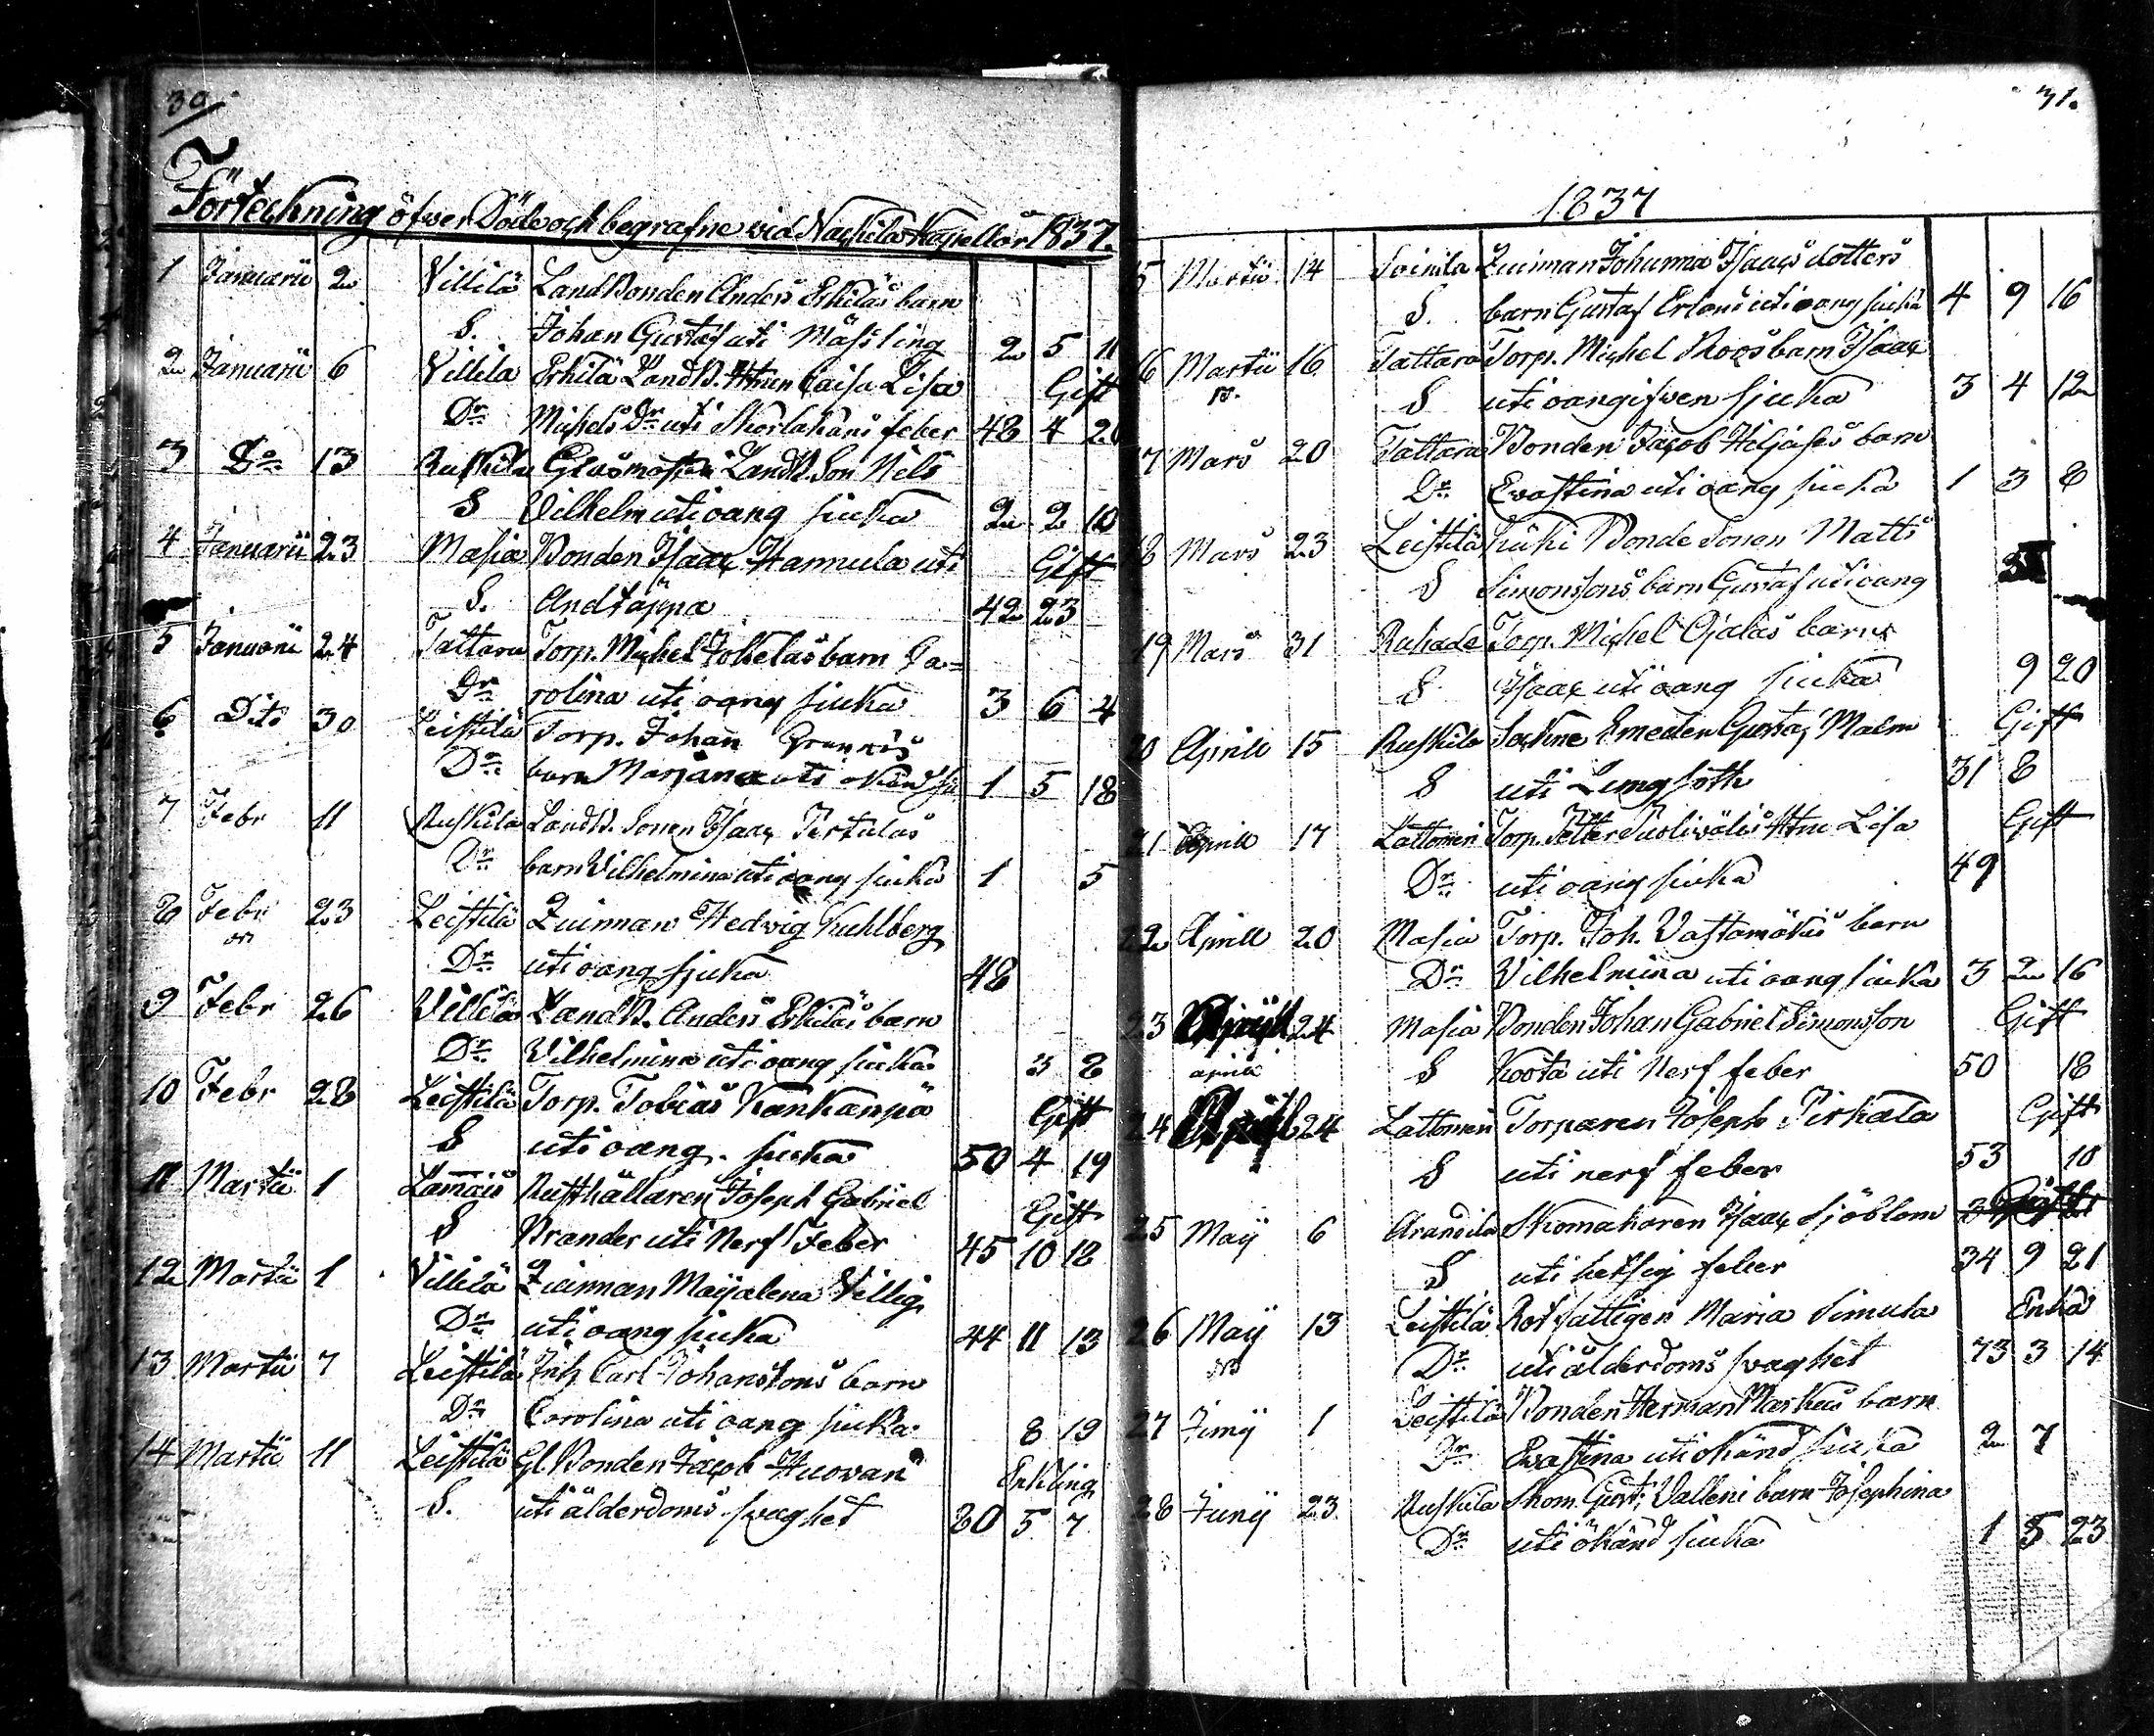 30
Förteckning öfver Döde och begrafne vid Nackila Kapell år 1837.
1 Januarii 2 Villilä Landbonden Anders Eskiläs barn
S. Johan Gustaf uti Mässling 2 5 11
2 Januarii 6 Villila Eskilä Landb. Hustrun Caisa Lisa Gift
Dr Michels Dr uti Skarlakans feber 48 4 20
3 Do 13 Ruskila Landb. Son Nils
S Vilhelm uti oang sjuka 2 2 10
4 Januarii 23 Masia Bonden Isaac Hannula uti Gift
S. Andtäppa 42 23
5 Januarii 24 Tattara Torp. Michel Jokelas barn Ca=
Dr rolina uti oang sjuka 3 6 4
6 Dito 30 Leistilä Torp. Johan
Dr barn Marjana uti okänd sju 1 5 18
7 Febr 11 Ruskila Landb. Sonen Isaac Pertulas
Dr barn Vilhelmina uti oang sjuka 1 5
8 Febr 23 Leistilä Quinnan Hedvig Kuhlberg
Dr uti oang sjuka 48
9 Febr 26 Villilä Landb. Anders Eskiläs barn
Dr Vilhelmina uti oang sjuka 3 8
10 Febr 28 Leistilä Torp. Tobias Kankanpä Gift
S uti oang. sjuka 50 4 19
11 Martii 1 Lamais Rusthållaren Joseph Gabriel Gift
S Brander uti Nerf Feber 45 10 12
12 Martii 1 Villilä Quinnan Maijalena Villig
Dr uti oang sjuka 44 11 13
13 Martii 7 Leistilä Inh. Carl Johanssons barn
Dr Carolina uti oang sjuka 8 19
14 Martii 11 Leistilä Gl Bonden Jacob Huovari Enkling
S. uti ålderdoms svaghet 80 5 7
31.
1837
15 Martii 14 Soinila Quinnan Johanna Isaacs dotters
S. barn Gustaf Erland uti oang sjuka 4 9 16
16 Martii 16 Tattara Torp. Michel Roos barn Isaac
S uti oangifven sjuka 3 4 12
17 Mars 20 Tattara Bonden Jacob Heljases barn
Dr Evastina uti oang sjuka 1 3 8
18 Mars 23 Leistilä Kuki Bonde Sonen Matts
S Simonssons barn Gustaf uti oang
19 Mars 31 Rahade Torp. Michel Ojalas barn
S Isaac uti oang sjuka 9 20
20 Aprill 15 Ruskila Sockne Smeden Gustaf Malm Gift
S uti Lungsoth 31 8
21 Aprill 17 Lattomeri Torp. Petter Puolivälis Hstru Lisa Gift
Dr uti oang sjuka 49
22 Aprill 20 Masia Torp. Joh. Vastamäkis barn
Dr Vilhelmina uti oang sjuka 3 2 16
23 24 Masia Bonden Johan Gabriel Simonsson Gift
aprill S Koota uti Nerf feber 50 18
24 24 Lattomeri Torparen Joseph Pirkala Gift
S uti nerf feber 53 10
25 Maij 6 Arandila Skomakaren Isaac Sjöblom
S uti hetsig feber 34 9 21
26 Maij 13 Leistilä Rotfattigen Maria Simula Enka
Dr uti ålderdoms svaghet 73 3 14
27 Junij 1 Leistilä Bonden Herman Markus barn
Dr Evastina uti okänd sjuka 2 7
28 Junij 23 Ruskila Skom. Gust. Valleni barn Josephina
Dr uti okänd sjuka 1 5 23